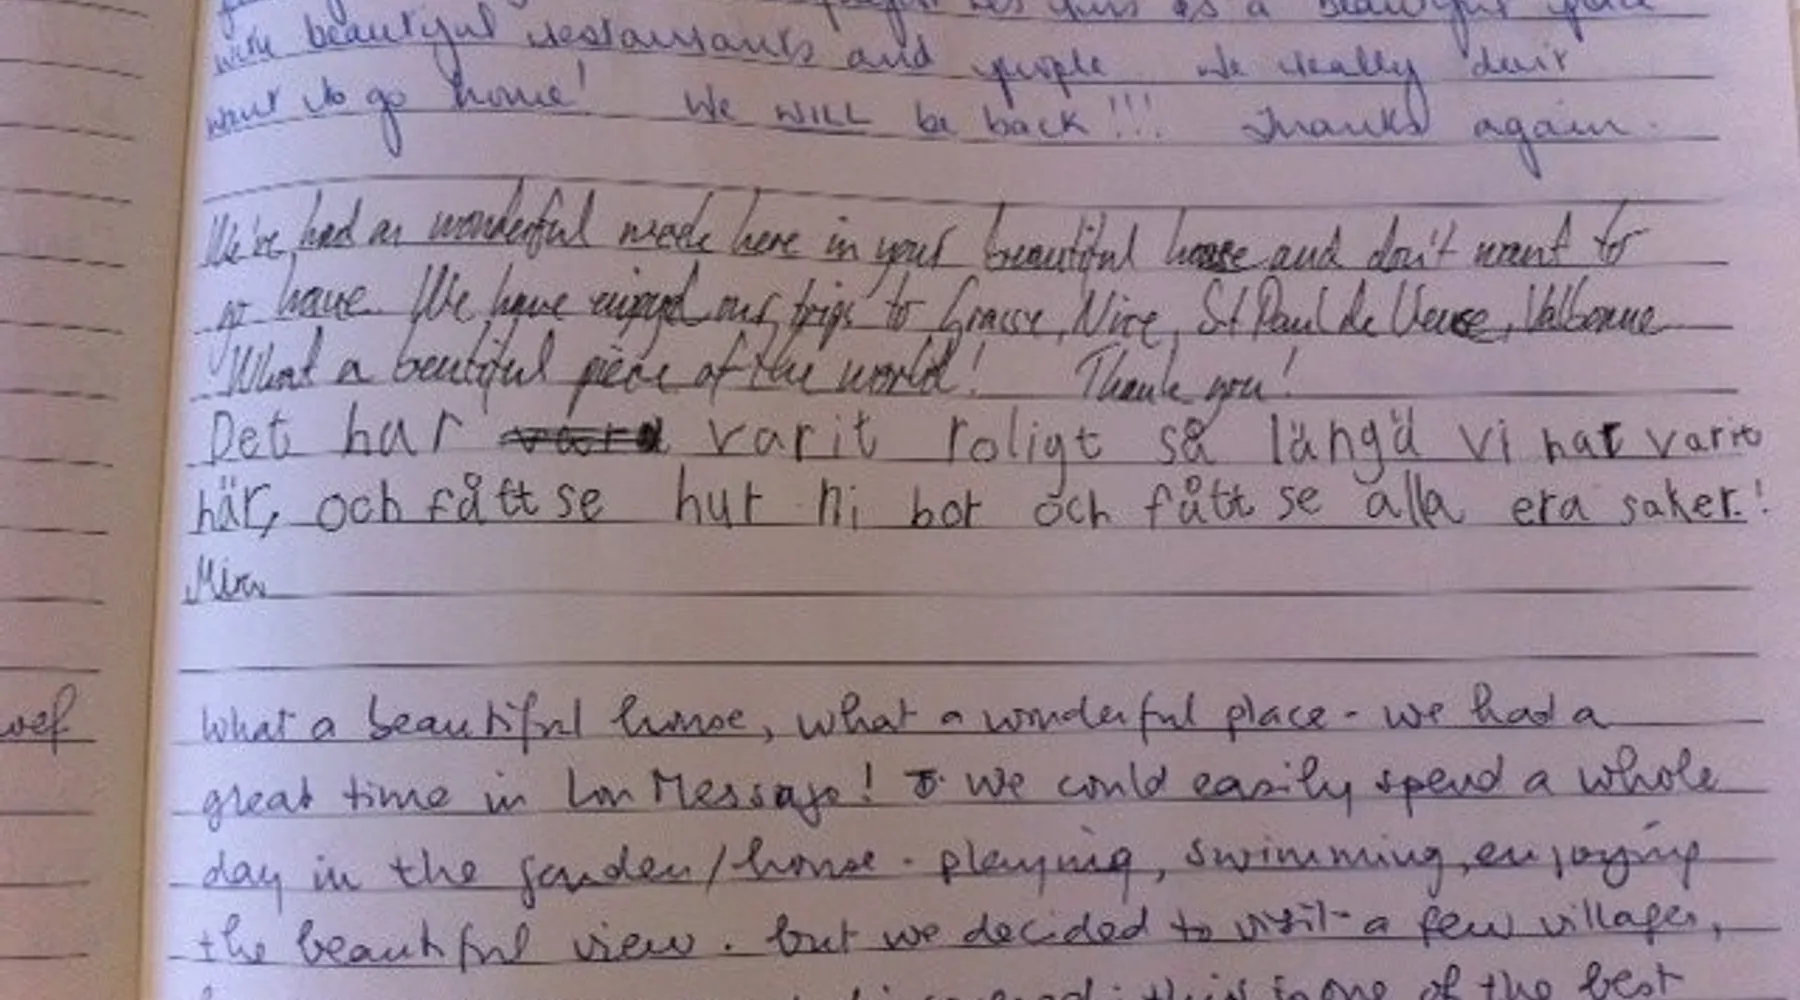 as a beautiful place
with beautiful restaurants and people we really don't
want to go home! We WILL be back!!! Thanks again.
We've had an wonderful week here in your beautiful house and don't want to
go home. We have enjoyed our trips to Grasse, Nice, St Paul de Vence, Valbonne
What a beutiful piece of the world! Thank you!
Det har varit roligt så längd vi har varit
här, och fått se hur ni bor och fått se alla era saker.!
wef
What a beautiful house, what a wonderful place - we had a
great time in Lou Messugo! We could easily spend a whole
day in the garden/house - playing, swimming, enjoying
the beautiful view. but we decided to visit a few villages,
this is one of the best